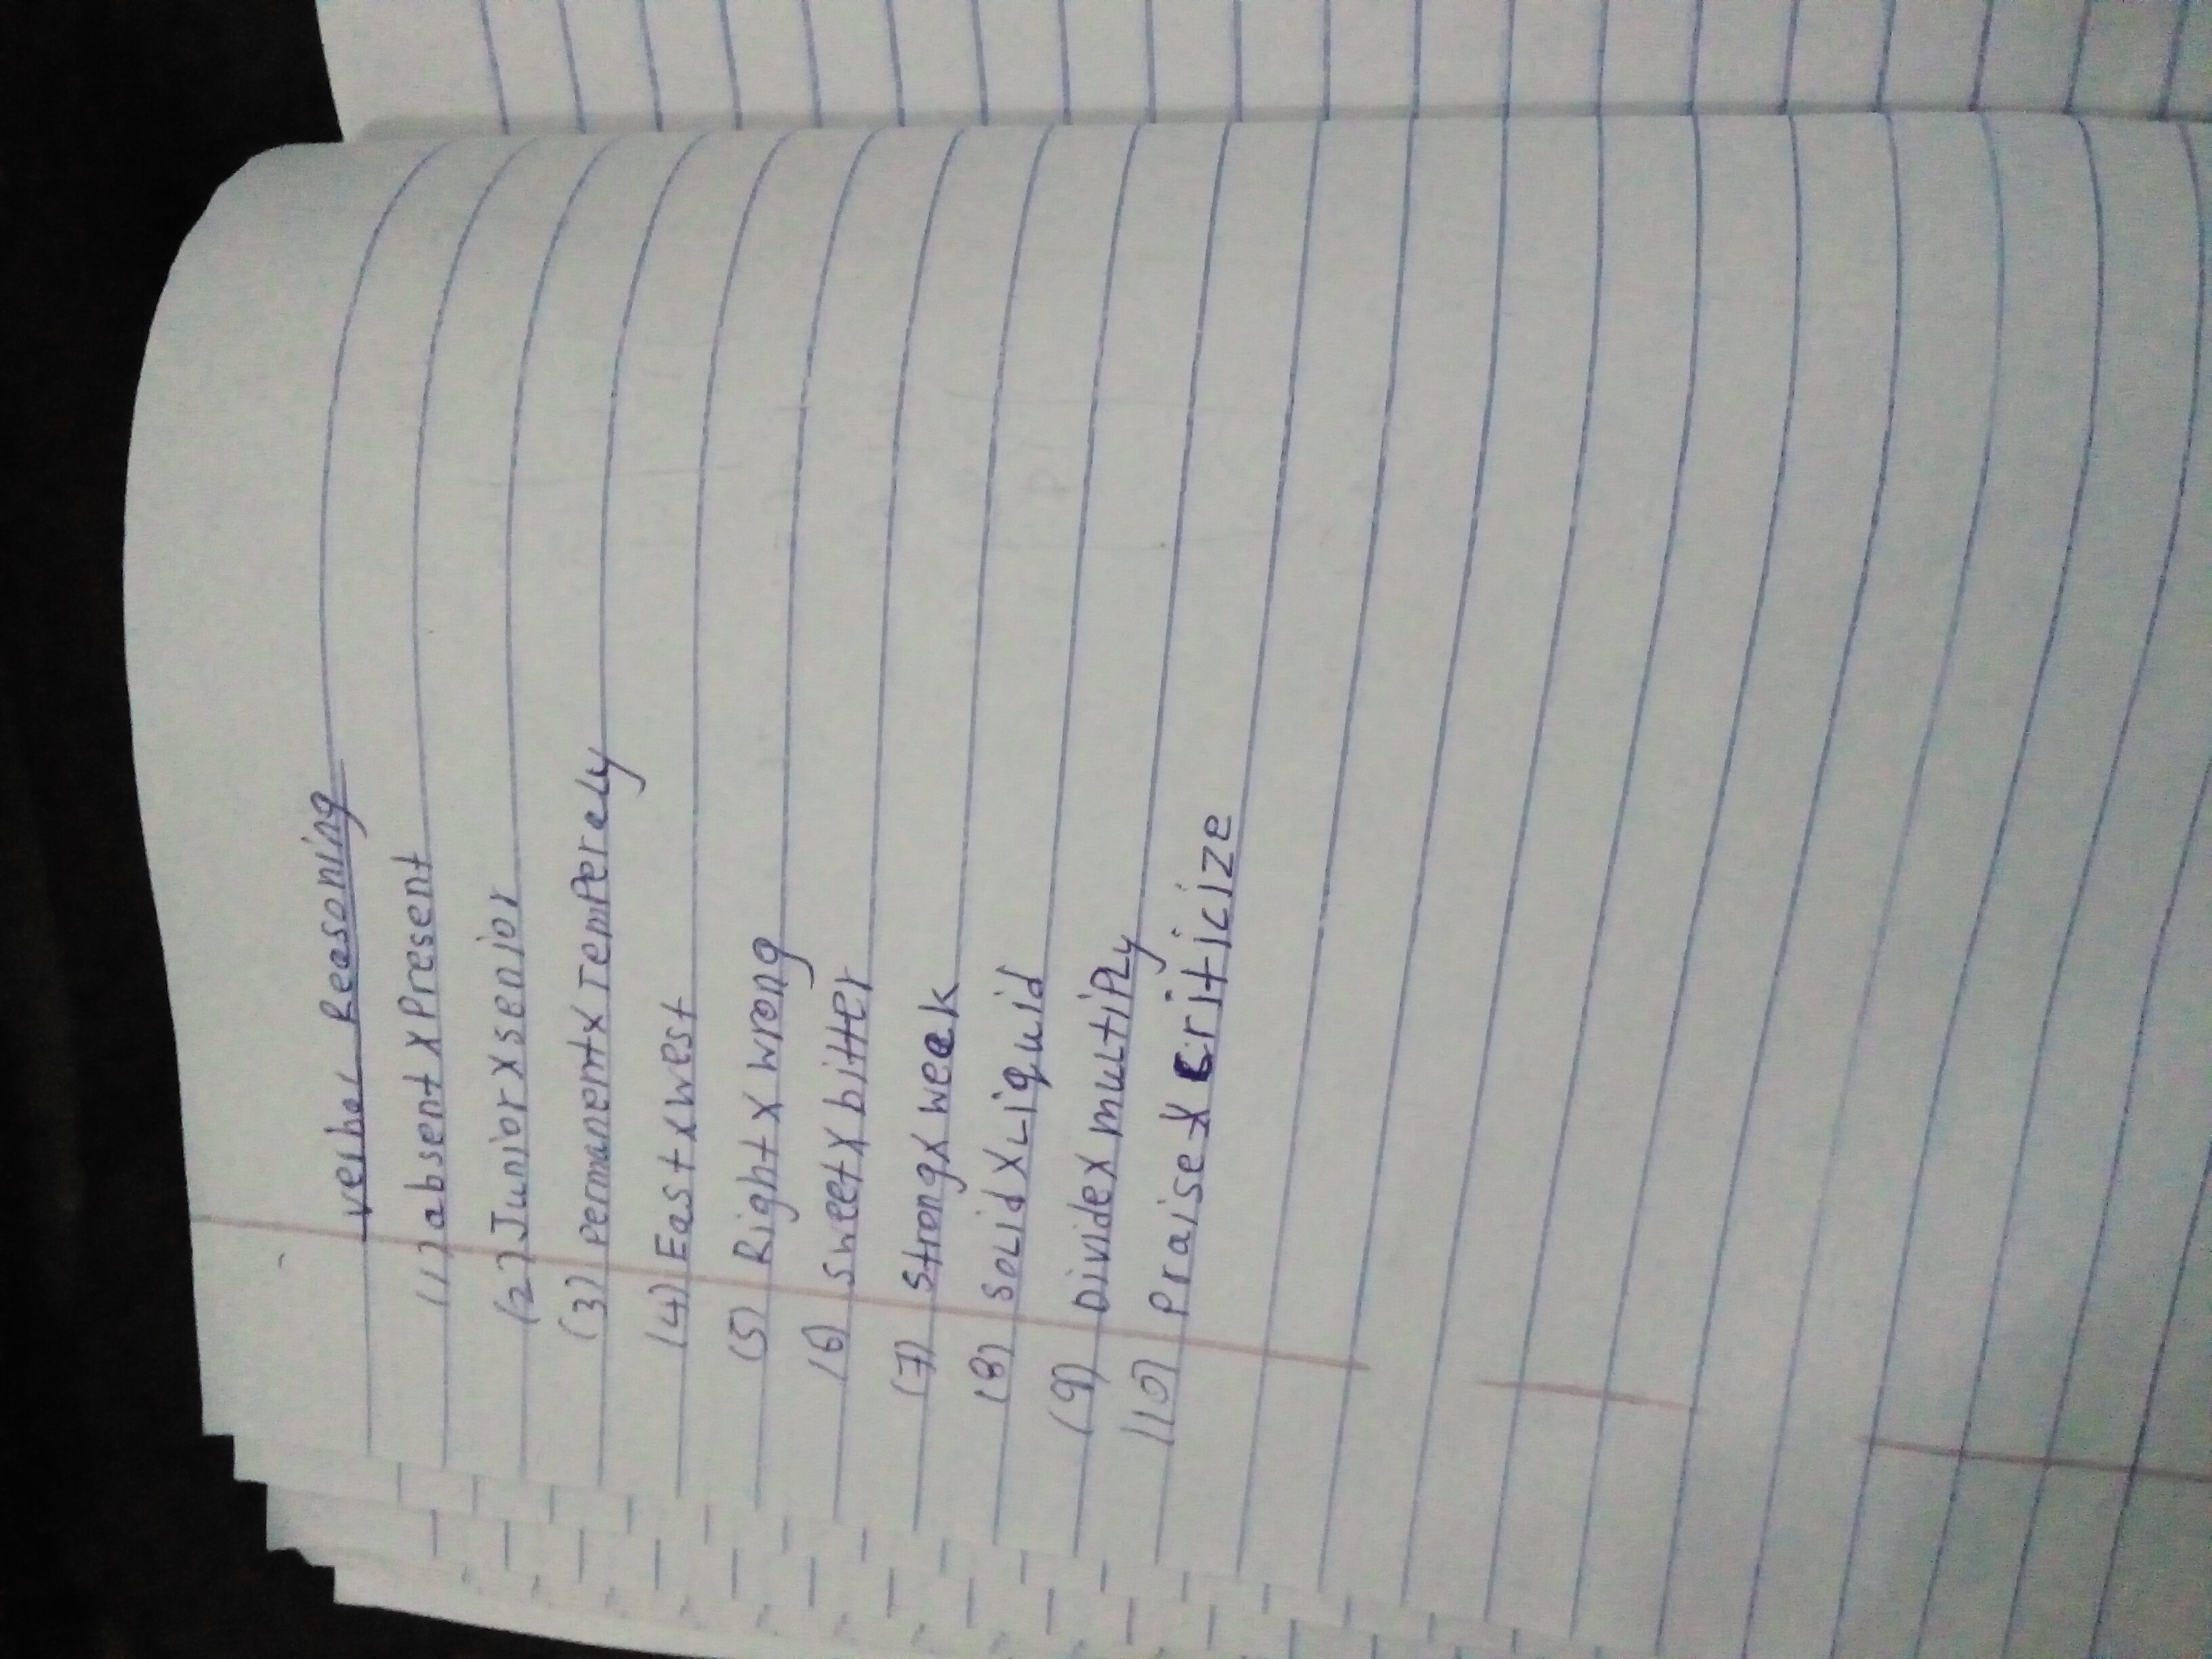 Verbal Reasoning
(1) absent x Present
(2) Junior x senior
(3) permanent x Temperely
(4) East x west
(5) Right x wrong
(6) sweet x bitter
(7) strong x weak
(8) solid x Liquid
(9) Divide x multiply
(10) Praise x criticize